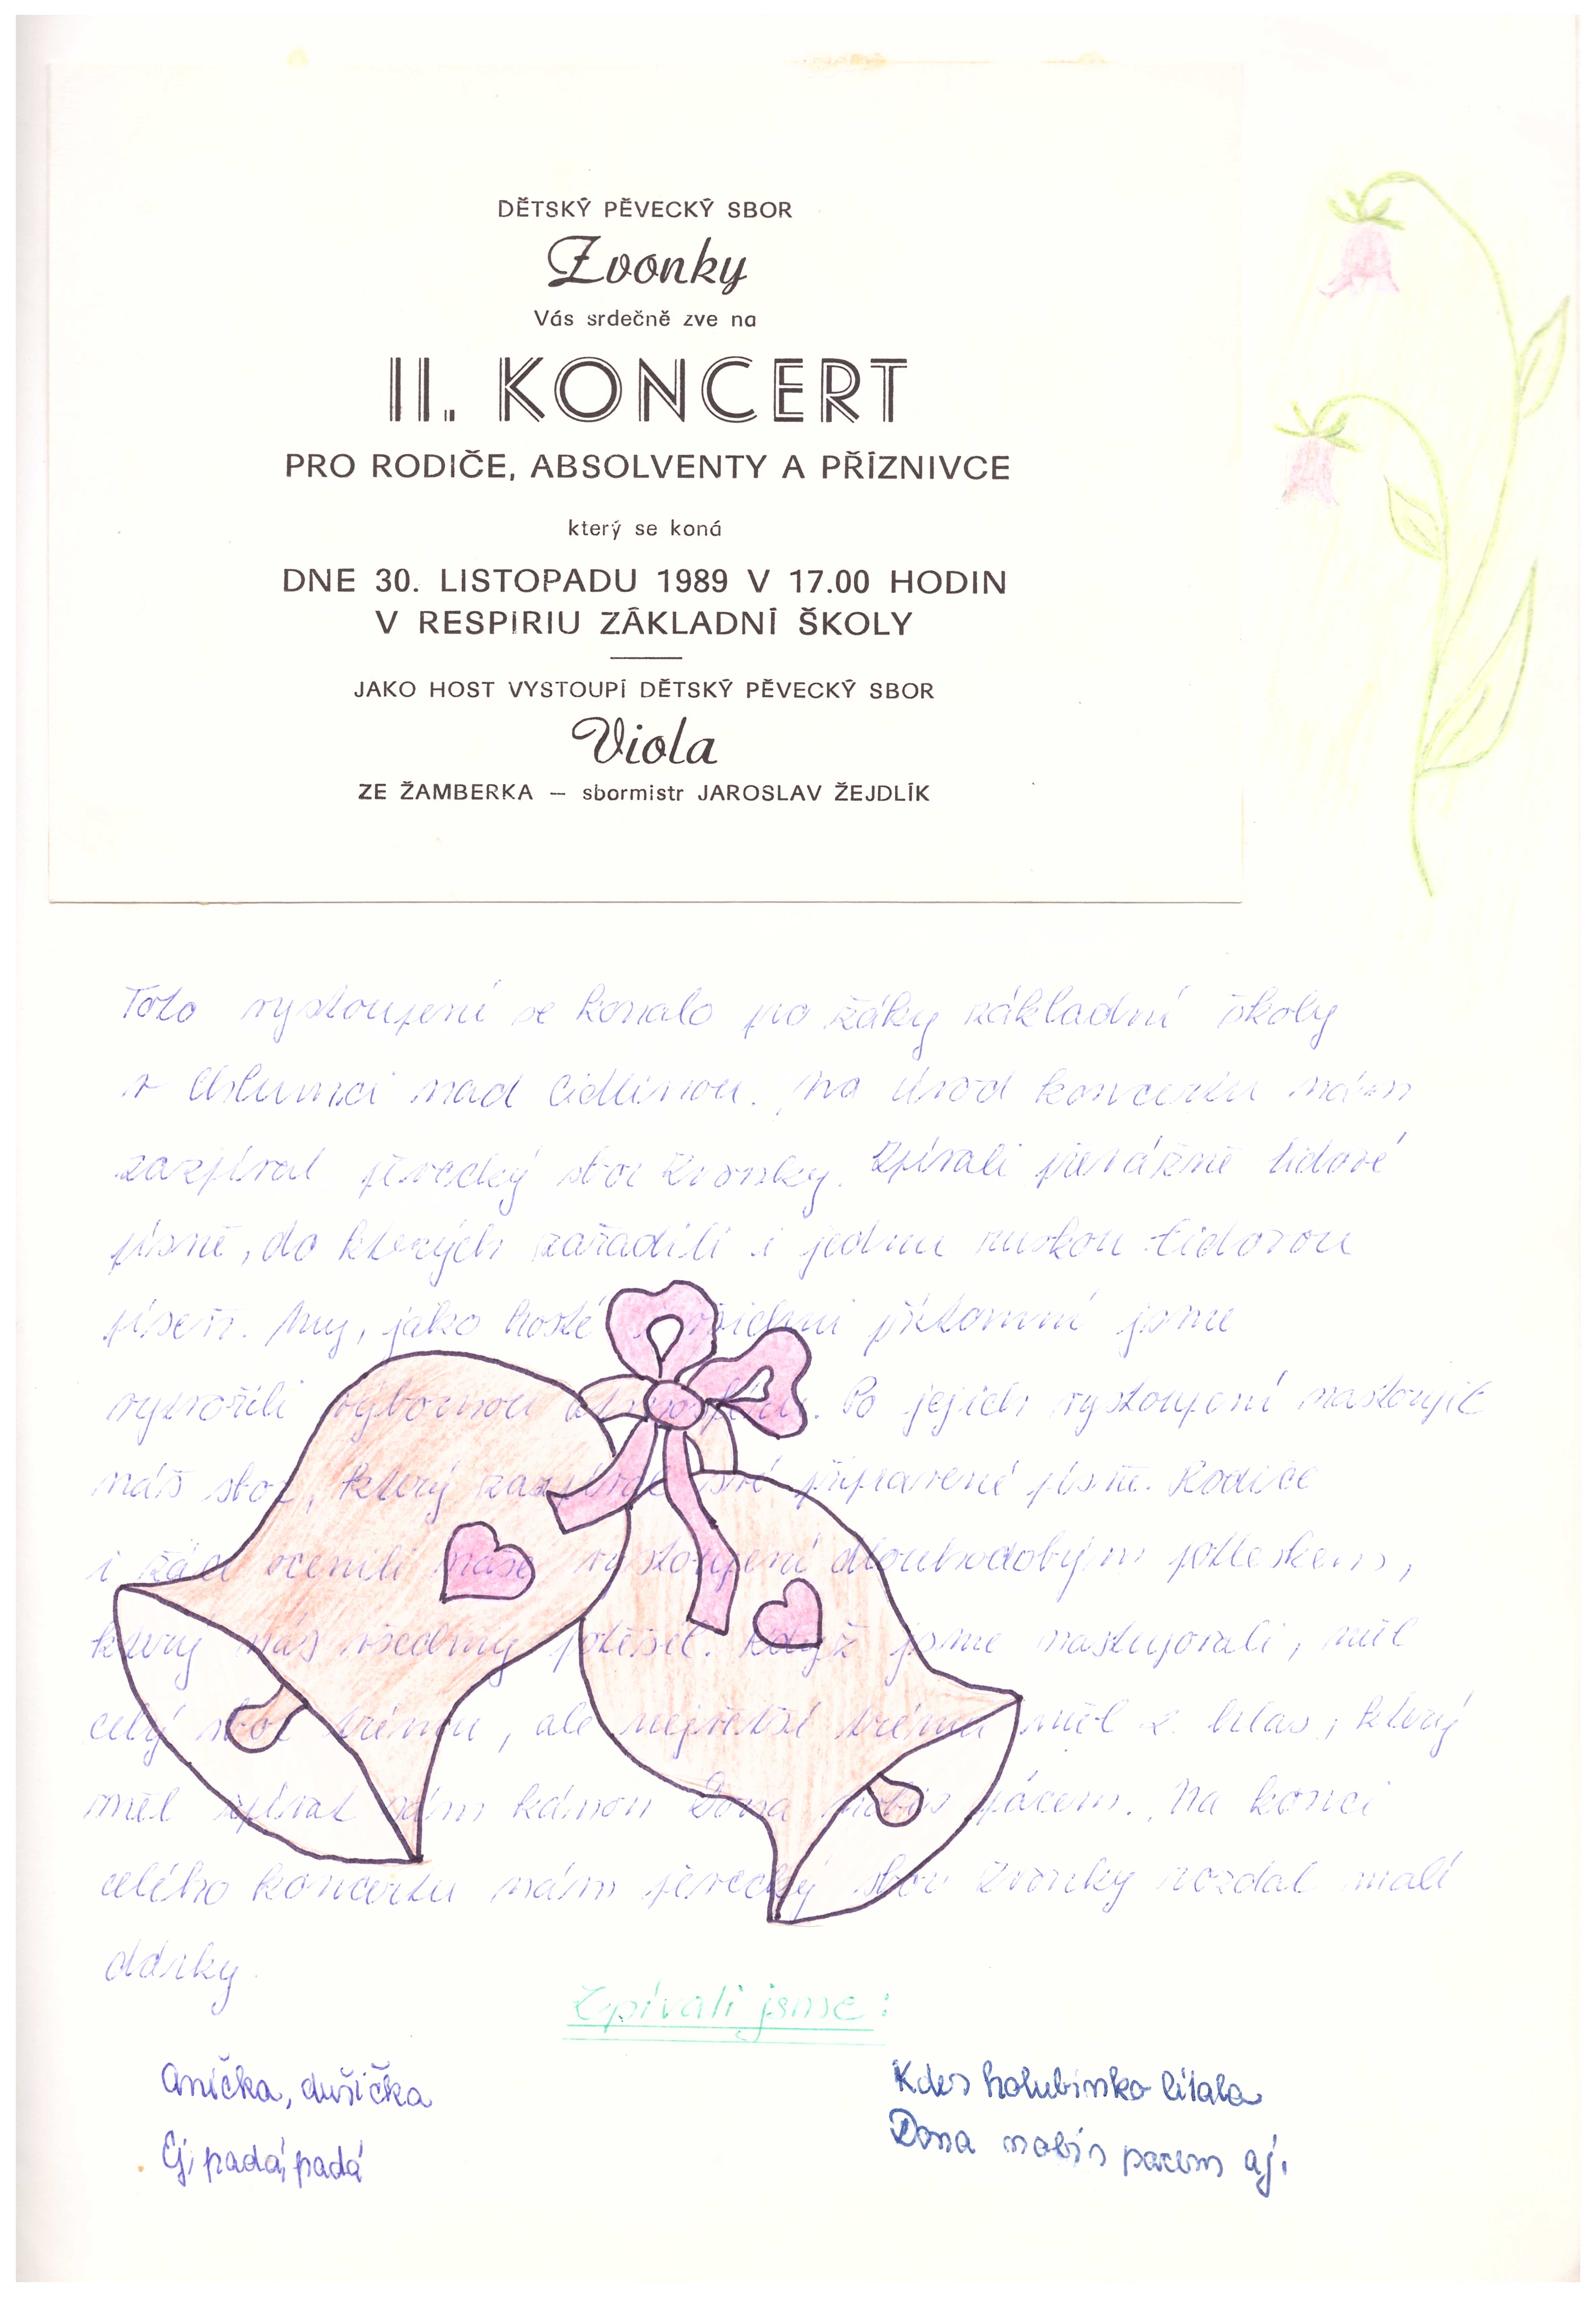 DĚTSKÝ PĚVECKÝ SBOR
Zvonky
Vás srdečně zve na
II. KONCERT
PRO RODIČE, ABSOLVENTY A PŘÍZNIVCE
který se koná
DNE 30. LISTOPADU 1989 V 17.00 HODIN
V RESPIRIU ZÁKLADNÍ ŠKOLY
JAKO HOST VYSTOUPÍ DĚTSKÝ PĚVECKÝ SBOR
Viola
ZE ŽAMBERKA – sbormistr JAROSLAV ŽEJDLÍK
Toto vystoupení se konalo pro žáky základní školy
v Chlumci nad Cidlinou. Na úvod koncertu nám
zazpíval pěvecký sbor Zvonky. Zpívali převážně lidové
písně, do kterých zařadili i jednu ruskou lidovou
píseň. My, jako hosté i všichni přítomní jsme
vytvořili výbornou atmosféru. Po jejich vystoupení nastoupil
náš sbor, který zazpíval své připravené písně. Rodiče
i žáci ocenili naše vystoupení dlouhodobým potleskem,
který nás všechny potěšil. Když jsme nastupovali, měl
celý sbor trému, ale největší trému měl 2. hlas, který
měl zpívat sám kánon Dona nobis pácem. Na konci
celého koncertu nám pěvecký sbor Zvonky rozdal malé
dárky.
Zpívali jsme:
Anička, dušička
Ej, padá, padá
Kdes holubinko lítala
Dona nobis pacem aj.